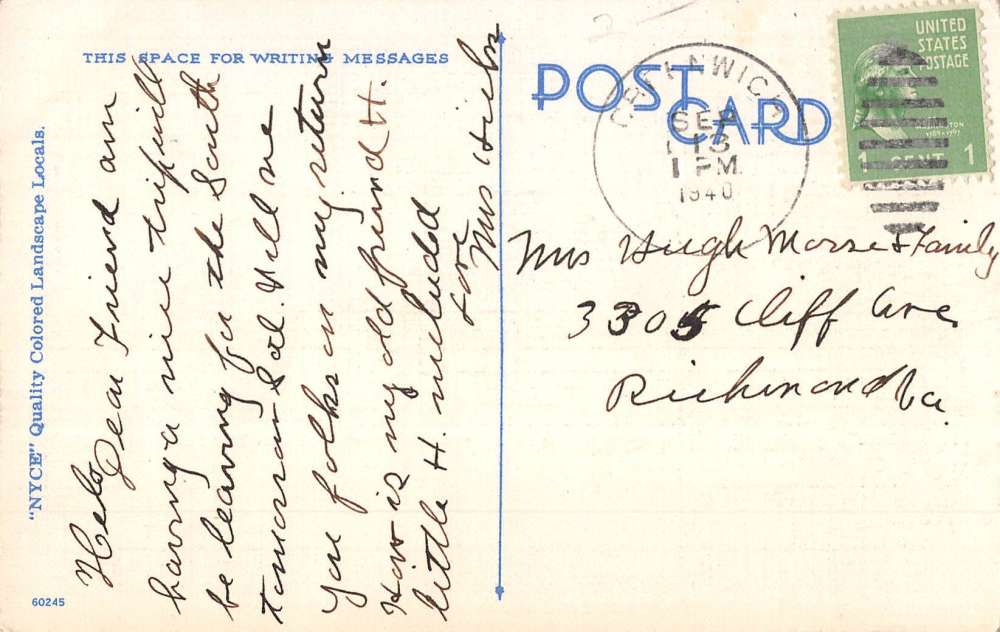 THIS SPACE FOR WRITING MESSAGES
POST CARD
GREENWICH
SEP
13
1 PM
1940
UNITED
STATES
POSTAGE
WASHINGTON
1789-1797
1 CENT 1
"NYCE" Quality Colored Landscape Locals.
60245
Helo
Dear Friend am
having a nice trip will
be leaving for the South
tomorrow Sat. Will see
you folks on my return
How is my old friend H.
little H included
Love
Mrs
Mrs Hugh Morse & Family
3305 Cliff Ave
Richmond Va.